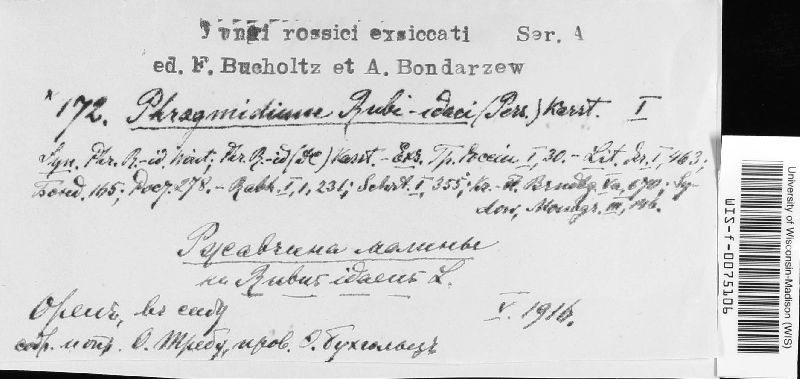 Fungi rossici exsiccati Ser. A
ed. F. Bucholtz et A. Bondarzew
*172. Phragmidium Rubi-idaei (Pers.) Karst. I
Syn. Phr. R.-id. Wint., Phr. R.-id (DC) Karst. - Exs. Гр. Россіи I, 30. - Lit. I, 463;
Бонд. 165; 278. - Rabh. I, 1, 231; Schrt. I, 355; Kr.-Fl. Brndbg Va, 670; Sy-
dow, Monogr. III, 146.
Ржавчина малины
на Rubus idaeus L.
Орелъ, въ саду V. 1914.
собр. и опр. О. Требу, пров. Ѳ. Бухгольцъ
University of Wisconsin-Madison (WIS)
WIS-f-0075106